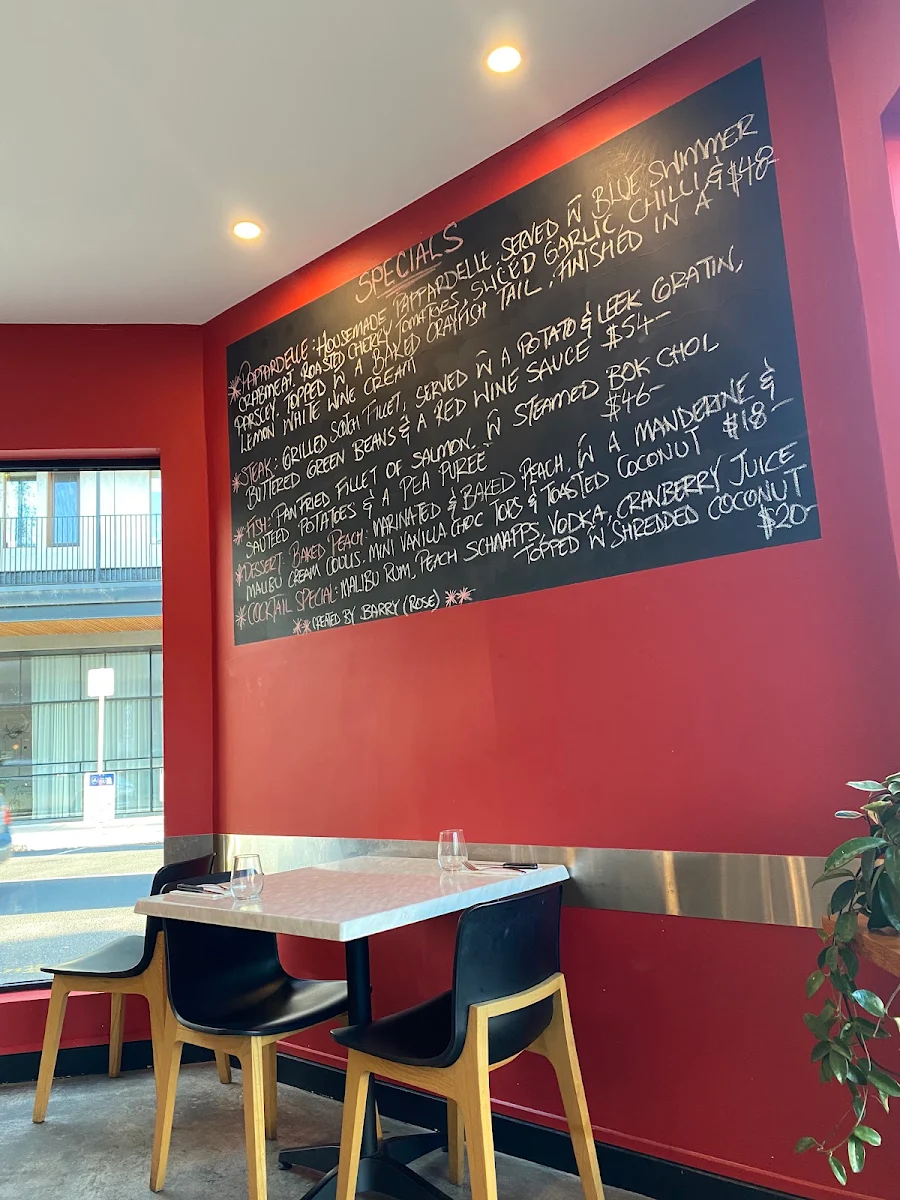 SPECIALS
*PAPPARDELLE: HOUSEMADE PAPPARDELLE, SERVED W BLUE SWIMMER
CRABMEAT, ROASTED CHERRY TOMATOES, SLICED GARLIC, CHILLI & $48-
PARSLEY, TOPPED W A BAKED CRAYFISH TAIL, FINISHED IN A
LEMON WHITE WINE CREAM
*STEAK: GRILLED SCOTCH FILLET, SERVED W A POTATO & LEEK GRATIN,
BUTTERED GREEN BEANS & A RED WINE SAUCE $54-
*FISH: PAN FRIED FILLET OF SALMON W STEAMED BOK CHOI
SAUTED POTATOES & A PEA PUREE $46-
*DESSERT: BAKED PEACH: MARINATED & BAKED PEACH, W A MANDERINE &
MALIBU CREAM COULIS, MINI VANILLA CHOC TOPS & TOASTED COCONUT $18-
*COCKTAIL SPECIAL: MALIBU RUM, PEACH SCHNAPPS, VODKA, CRANBERRY JUICE
TOPPED W SHREDDED COCONUT
**CREATED BY BARRY (ROSE)** $20-